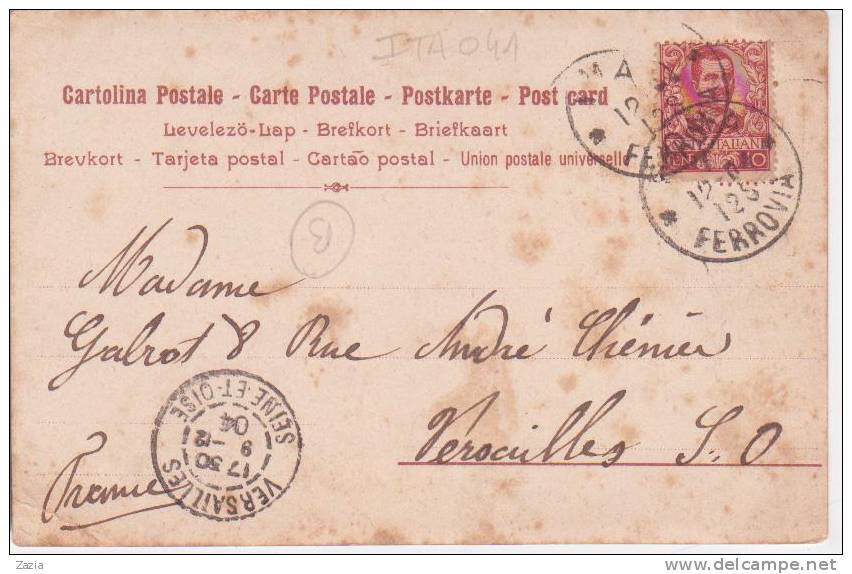 ITA041
Cartolina Postale - Carte Postale - Postkarte - Post card
Levelezö-Lap - Brefkort - Briefkaart
Brevkort - Tarjeta postal - Cartão postal - Union postale universelle
B
FERROVIA
10
12
12 S
FERROVIA
Madame
Galrot 8 Rue André Chénier
Versailles S. O
France
VERSAILLES
17 30
9 -12
04
SEINE-ET-OISE
Zazia
delcampe.net